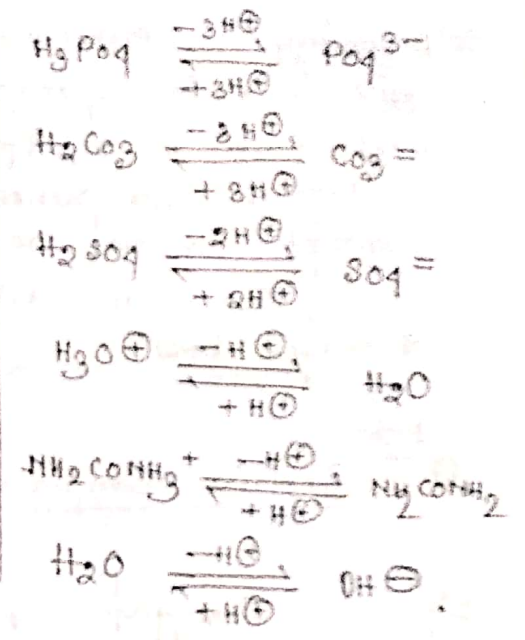 H3PO4 -3H⊕ ⇌ +3H⊕ PO4 3-
H2CO3 -3H⊕ ⇌ +3H⊕ CO3 =
H2SO4 -2H⊕ ⇌ +2H⊕ SO4 =
H3O⊕ -H⊕ ⇌ +H⊕ H2O
NH2CONH3+ -H⊕ ⇌ +H⊕ NH2CONH2
H2O -H⊕ ⇌ +H⊕ OH⊖.